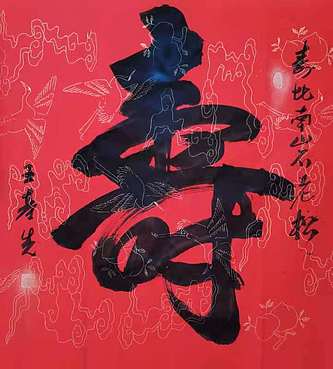 寿比南岩老松
寿
王寿先